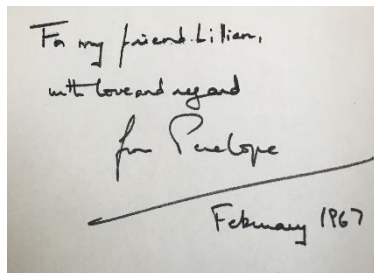 For my friend Lilian,
with love and regard
from Penelope
February 1967